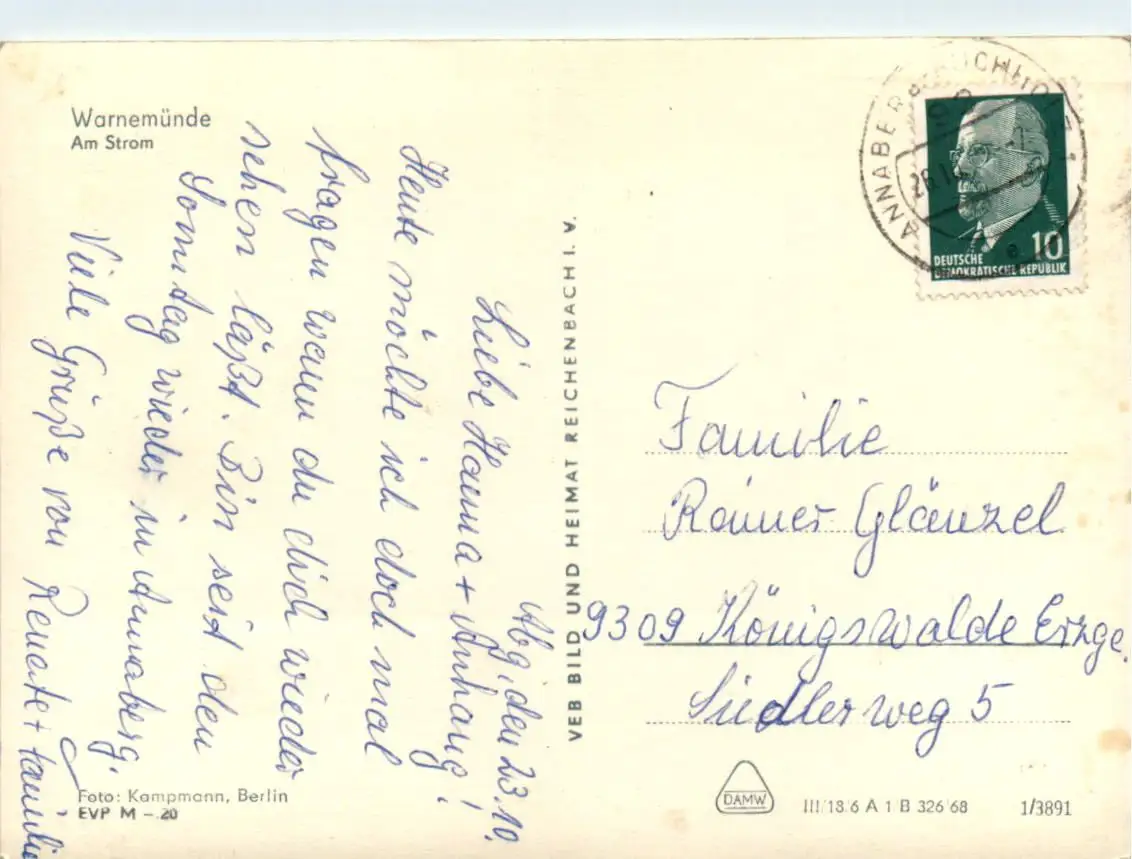 Warnemünde
Am Strom
Abg, den 23.10.
Liebe Hanna + Anhang!
Heute möchte ich doch mal
fragen wann du dich wieder
sehen läßt. Bin seit den
Sonntag wieder in Annaberg.
Viele Grüße von Renate + Familie
Foto: Kampmann, Berlin
EVP M -.20
VEB BILD UND HEIMAT REICHENBACH I. V.
ANNABERG-BUCHHOLZ 1
DEUTSCHE
DEMOKRATISCHE REPUBLIK
10
Familie
Rainer Glänzel
9309 Königswalde Erzge.
Siedlerweg 5
DAMW
III/18/6 A 1 B 326/68
1/3891